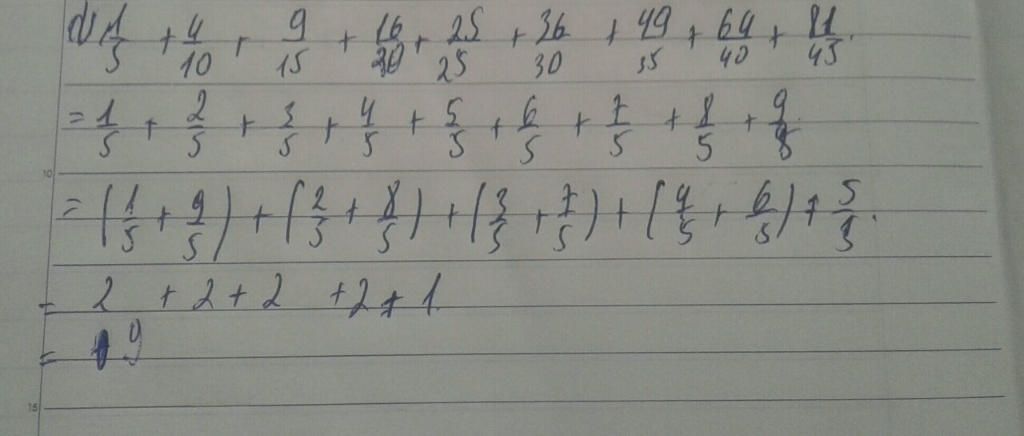 d) 1/5 + 4/10 + 9/15 + 16/20 + 25/25 + 36/30 + 49/35 + 64/40 + 81/45.
= 1/5 + 2/5 + 3/5 + 4/5 + 5/5 + 6/5 + 7/5 + 8/5 + 9/5
10
= (1/5 + 9/5) + (2/5 + 8/5) + (3/5 + 7/5) + (4/5 + 6/5) + 5/5.
= 2 + 2 + 2 + 2 + 1
= 9
15